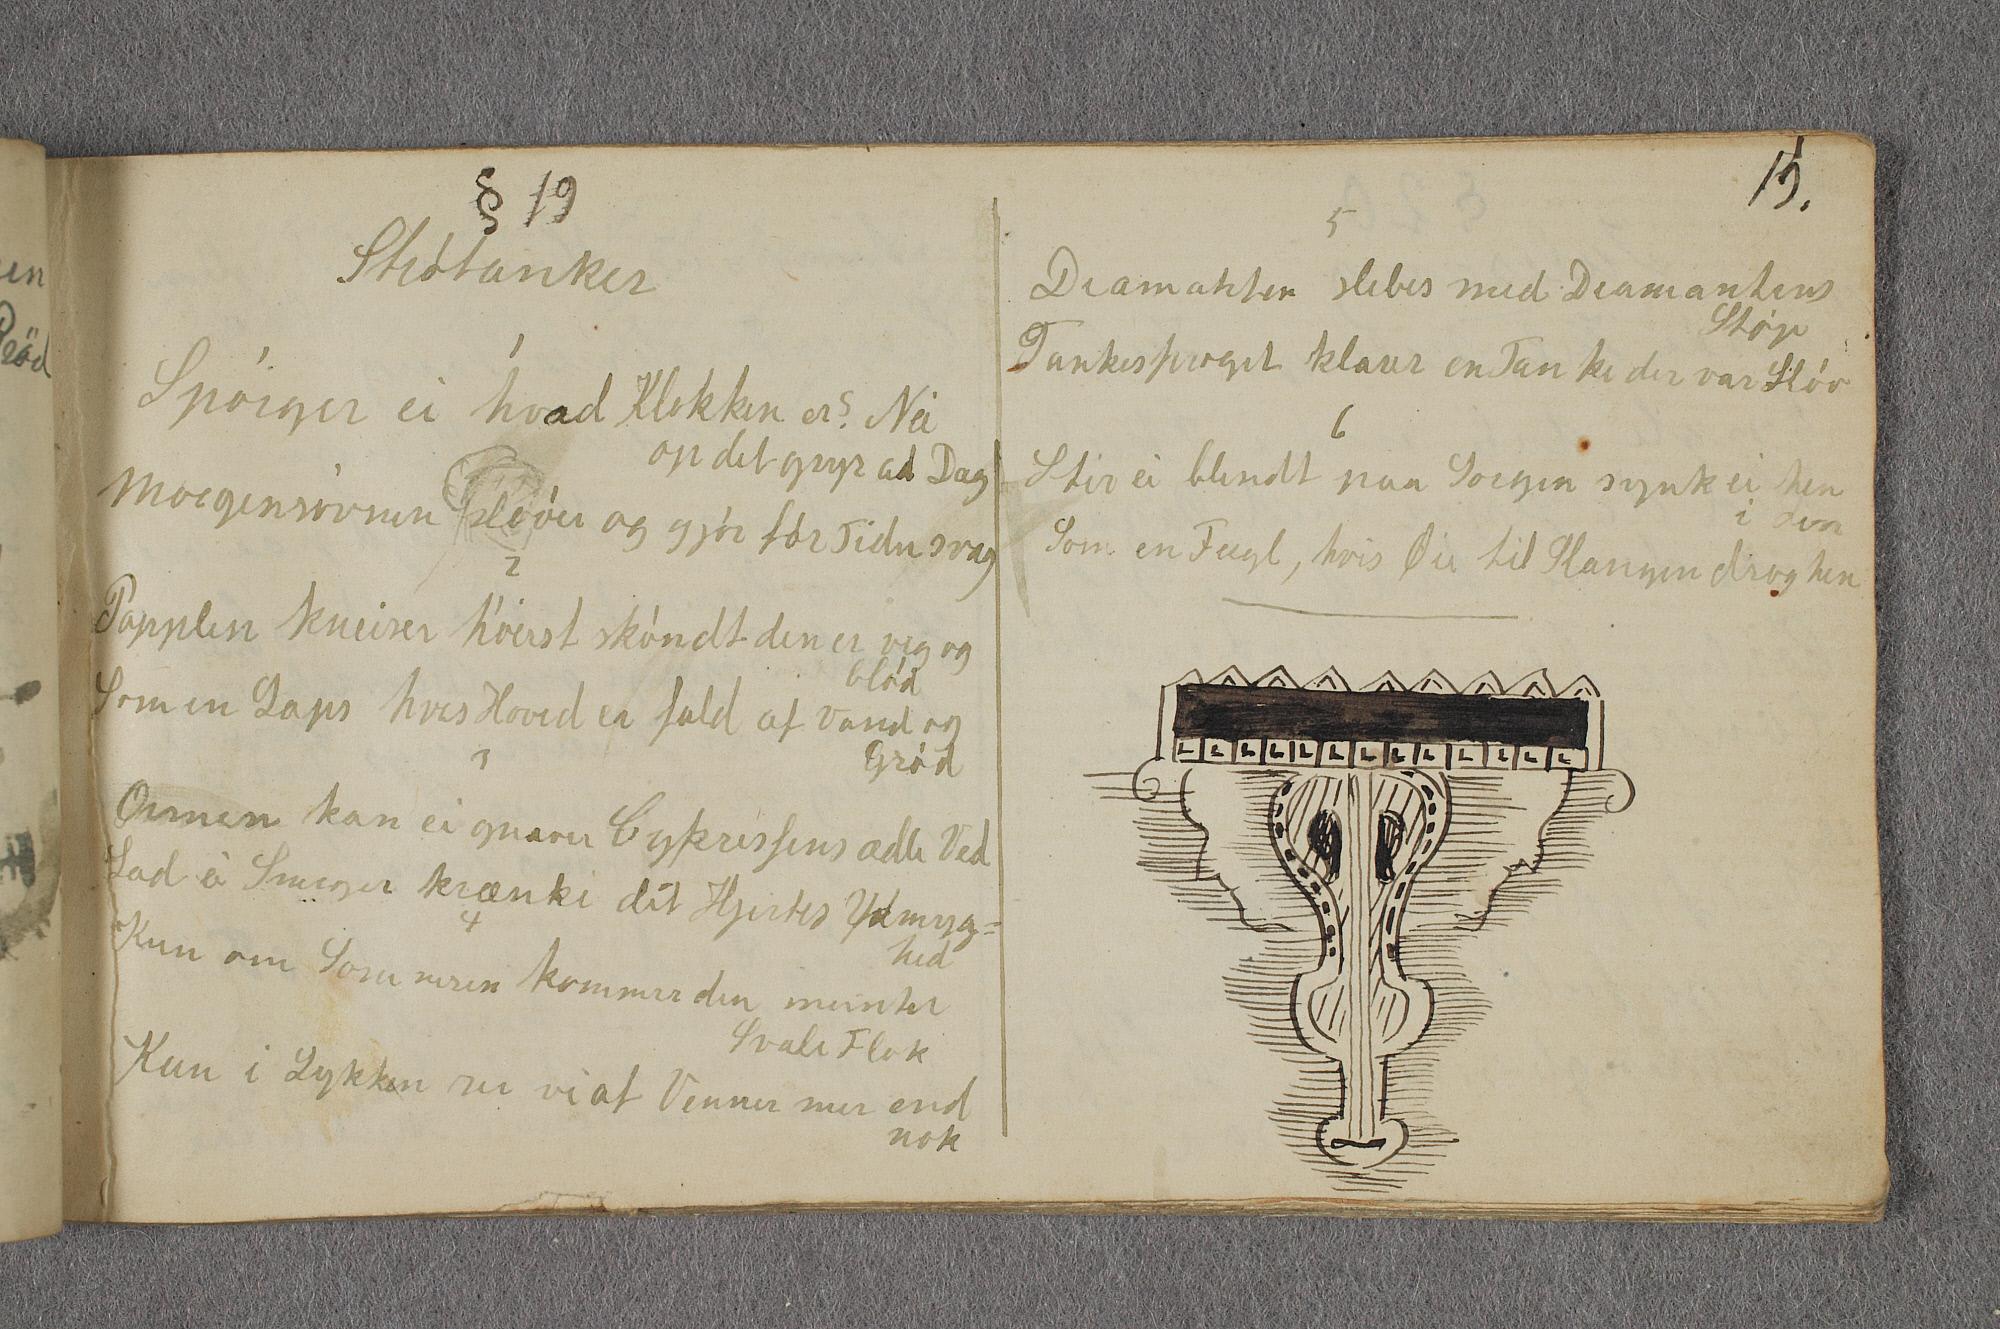 § 19
Strötanker
1
Spörger ei hvad Klokken er? Nei
op det gryr ad Dag
Morgensövnen slöver og gjör för Tiden svag
2
Popplen kneiser höiest sköndt den er veg og
blöd
Som en Laps hvis Hoved er fuld af Vand og
Gröd
3
Ormen kan ei gnave Cypressens ædle Ved
Lad ei Smiger krænke dit Hjertes Ydmyg=
hed
4
Kun om Sommeren kommer den munter
Svale Flok
Kun i Lykken ser vi af Venner mer end
nok
15.
5
Diamanten slebes med Diamantens
Stöv
Tankesproget klarer en Tanke der var Slöv
6
Stir ei blindt paa Sorgen synk ei hen
i den
Som en Fugl, hvis Øie til Slangen drog hen
en
Röd